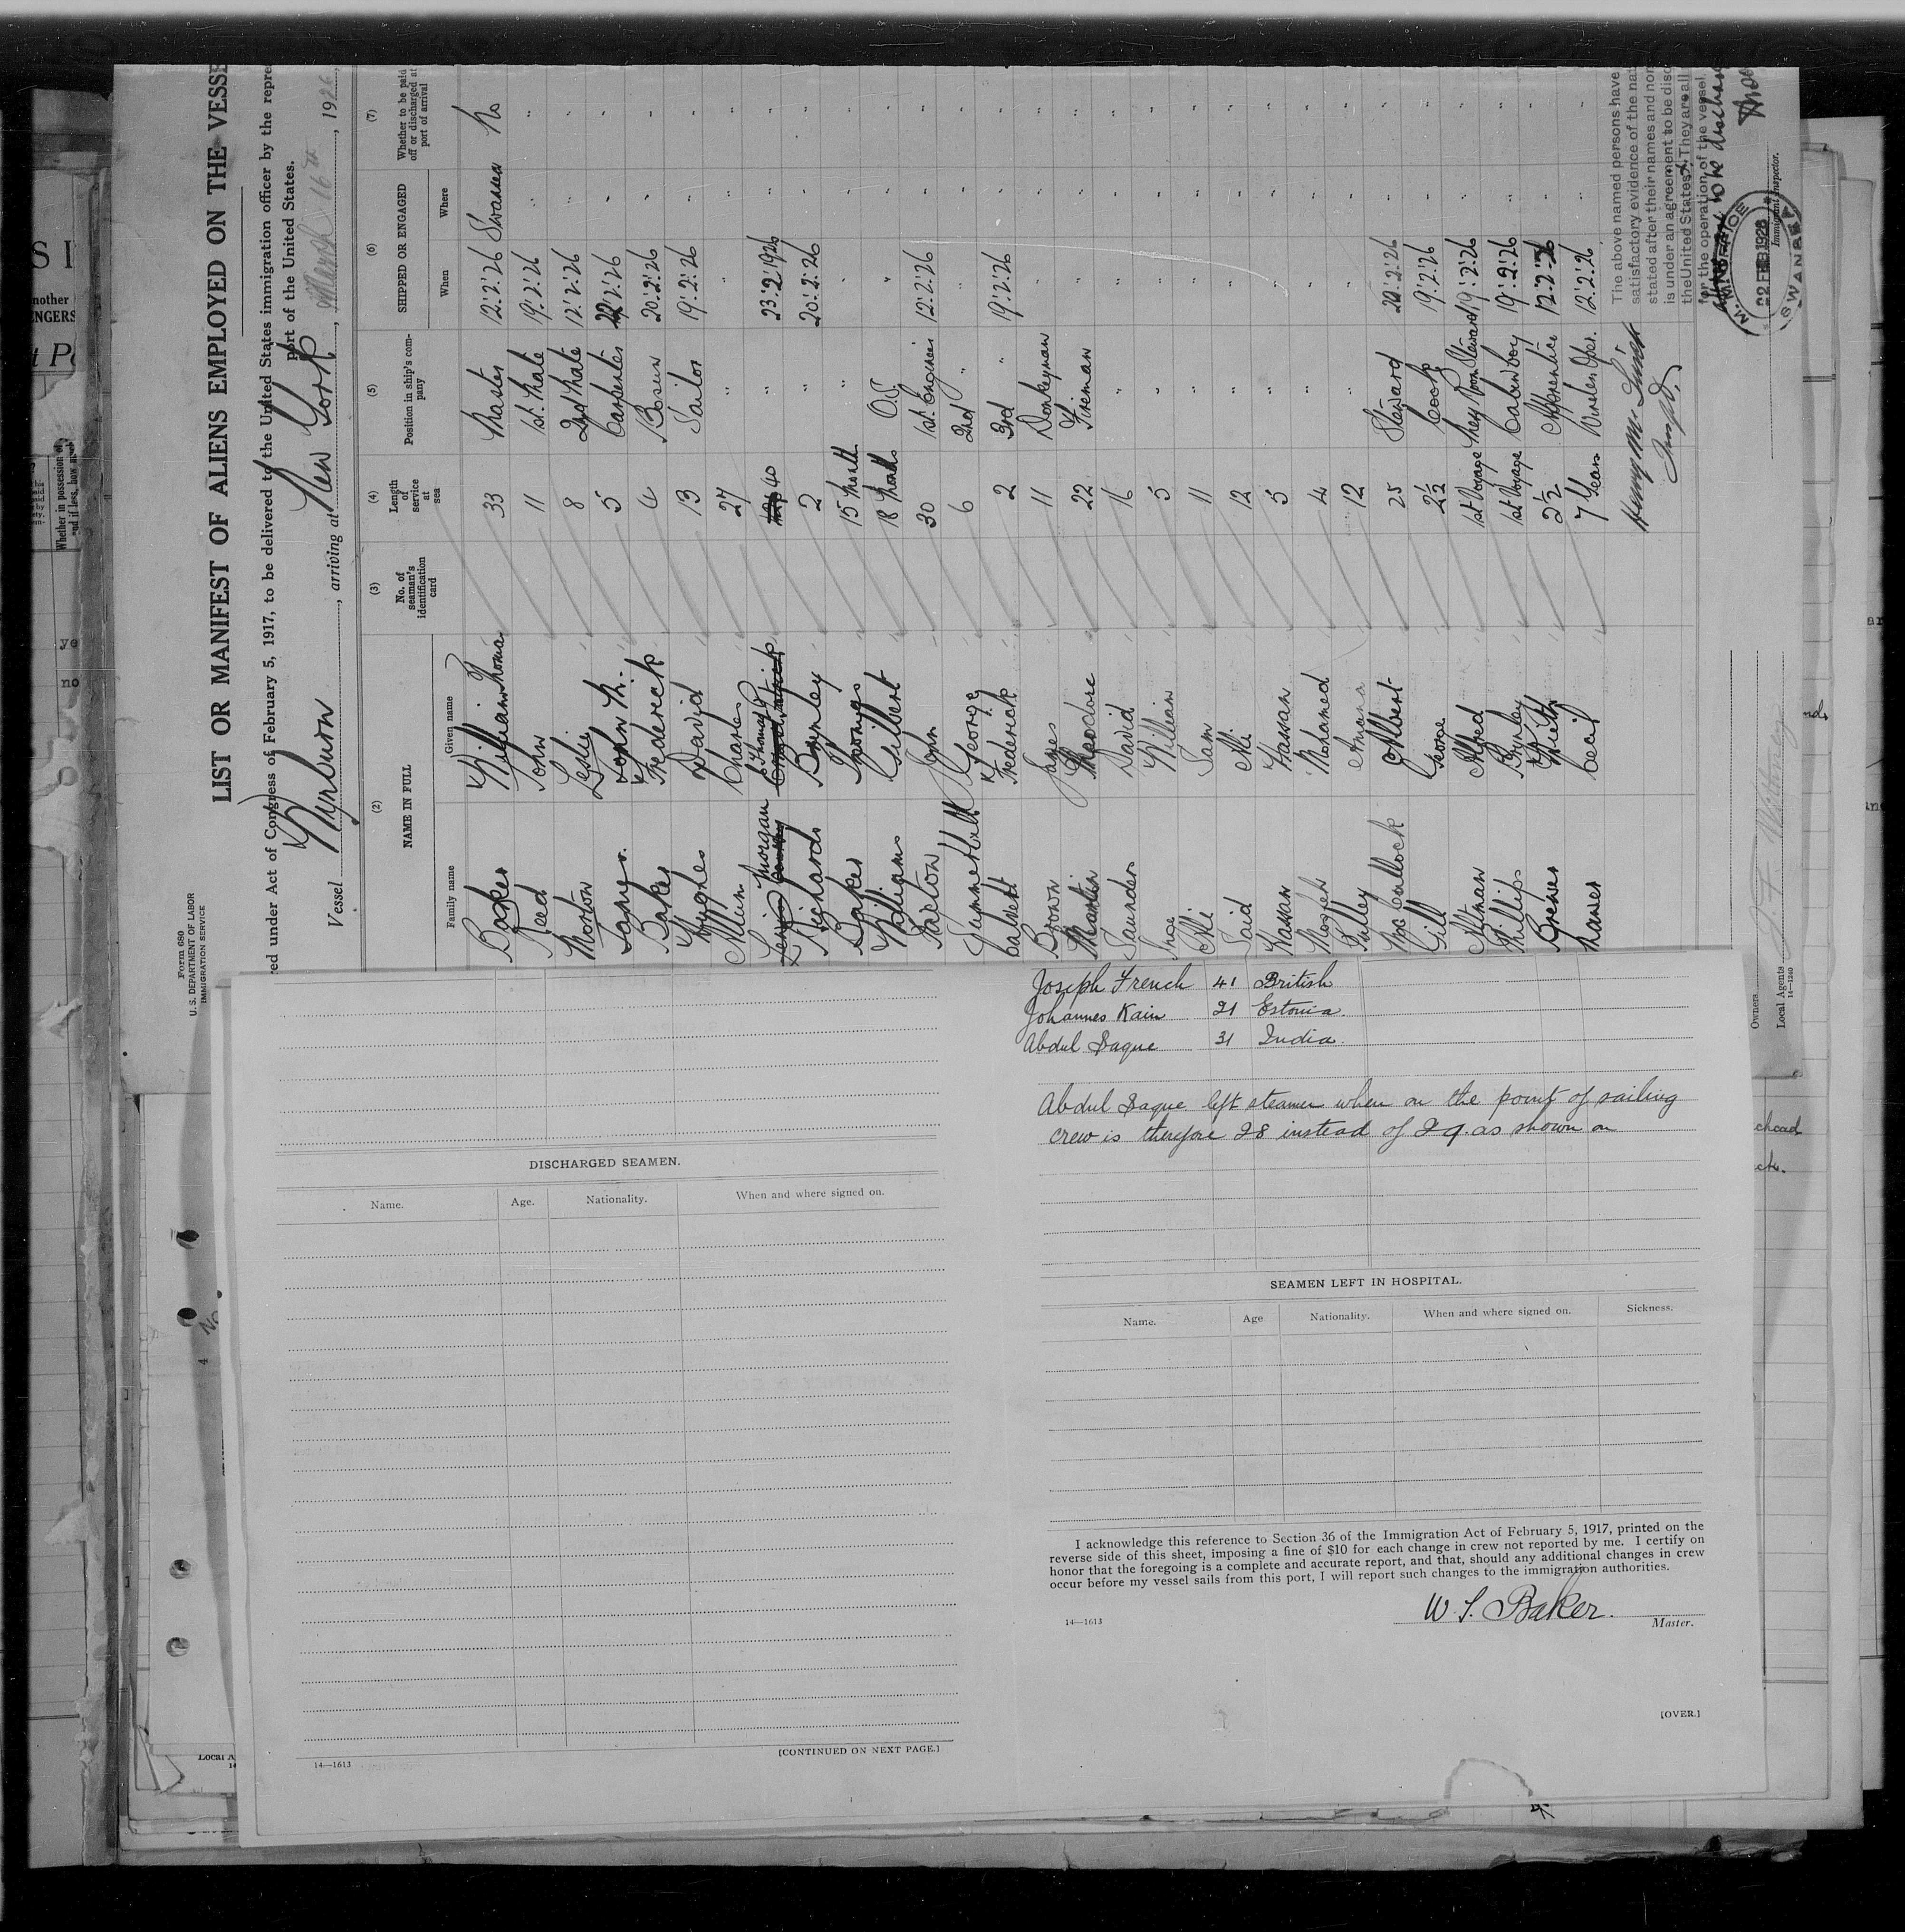 Form 680
U. S. DEPARTMENT OF LABOR
IMMIGRATION SERVICE
LIST OR MANIFEST OF ALIENS EMPLOYED ON THE VESSE
red under Act of Congress of February 5, 1917, to be delivered to the United States immigration officer by the repre
port of the United States.
Vessel , arriving at New York , March 16th , 1926
(2) (3) (4) (5) (6) (7)
NAME IN FULL
Family name Given name
No. of seaman's identification card
Length of service at sea
Position in ship's company
SHIPPED OR ENGAGED
When Where
Whether to be paid off or discharged at port of arrival
Baker William Thomas 33 Master 12.2.26 Swansea No
Reed John 11 1st. Mate 19.2.26 " "
Morton Leslie 8 2nd Mate 12.2.26 " "
John 5 Carpenter 22.2.26 " "
Baker Frederick 4 Bosun 20.2.26 " "
Hughes David 13 Sailor 19.2.26 " "
Allen Charles 27 " " " "
Morgan Thomas 40 " 23.2.1926 " "
Richards Brynley 2 " 20.2.26 " "
Baker Thomas 15 Months " " " "
Williams Gilbert 18 Months O.S. " " "
Farton John 30 1st. Engineer 12.2.26 " "
Summerhill George 6 2nd " " " "
Calvert Frederick 2 3rd " 19.2.26 " "
Brown James 11 Donkeyman " " "
Martin Theodore 22 Fireman " " "
Saunders David 16 " " " "
William 5 " " " "
Ali Sam 11 " " " "
Said Ali 12 " " " "
Hassan Hassan 5 " " " "
Mohamed 4 " " " "
12 " " " "
McCullock Albert 25 Steward 20.2.26 " "
Gill George 2½ Cook 19.2.26 " "
Altman Alfred 1st Voyage Mess Room Steward 19.2.26 " "
Phillips Brynley 1st Voyage Cabin boy 19.2.26 " "
Brewer 2½ Apprentice 12.2.26 " "
Cecil 7 Years Wireless Oper. 12.2.26 " "
Henry M.
The above named persons have
satisfactory evidence of the nat
stated after their names and non
is under an agreement to be disc
the United States. They are all
for the operation of the vessel.
to be discharge
22 FEB 1926
SWANSEA
Immigrant Inspector.
Owners
Local Agents
14—1240
Joseph French 41 British
Johannes Kain 21 Estonia
Abdul Saque 31 India
Abdul Saque left steamer when on the point of sailing
crew is therefore 28 instead of 29. as shown on
DISCHARGED SEAMEN.
Name. Age. Nationality. When and where signed on.
14—1613
[CONTINUED ON NEXT PAGE.]
SEAMEN LEFT IN HOSPITAL.
Name. Age Nationality. When and where signed on. Sickness.
I acknowledge this reference to Section 36 of the Immigration Act of February 5, 1917, printed on the
reverse side of this sheet, imposing a fine of $10 for each change in crew not reported by me. I certify on
honor that the foregoing is a complete and accurate report, and that, should any additional changes in crew
occur before my vessel sails from this port, I will report such changes to the immigration authorities.
W. T. Baker.
14—1613
Master.
[OVER.]